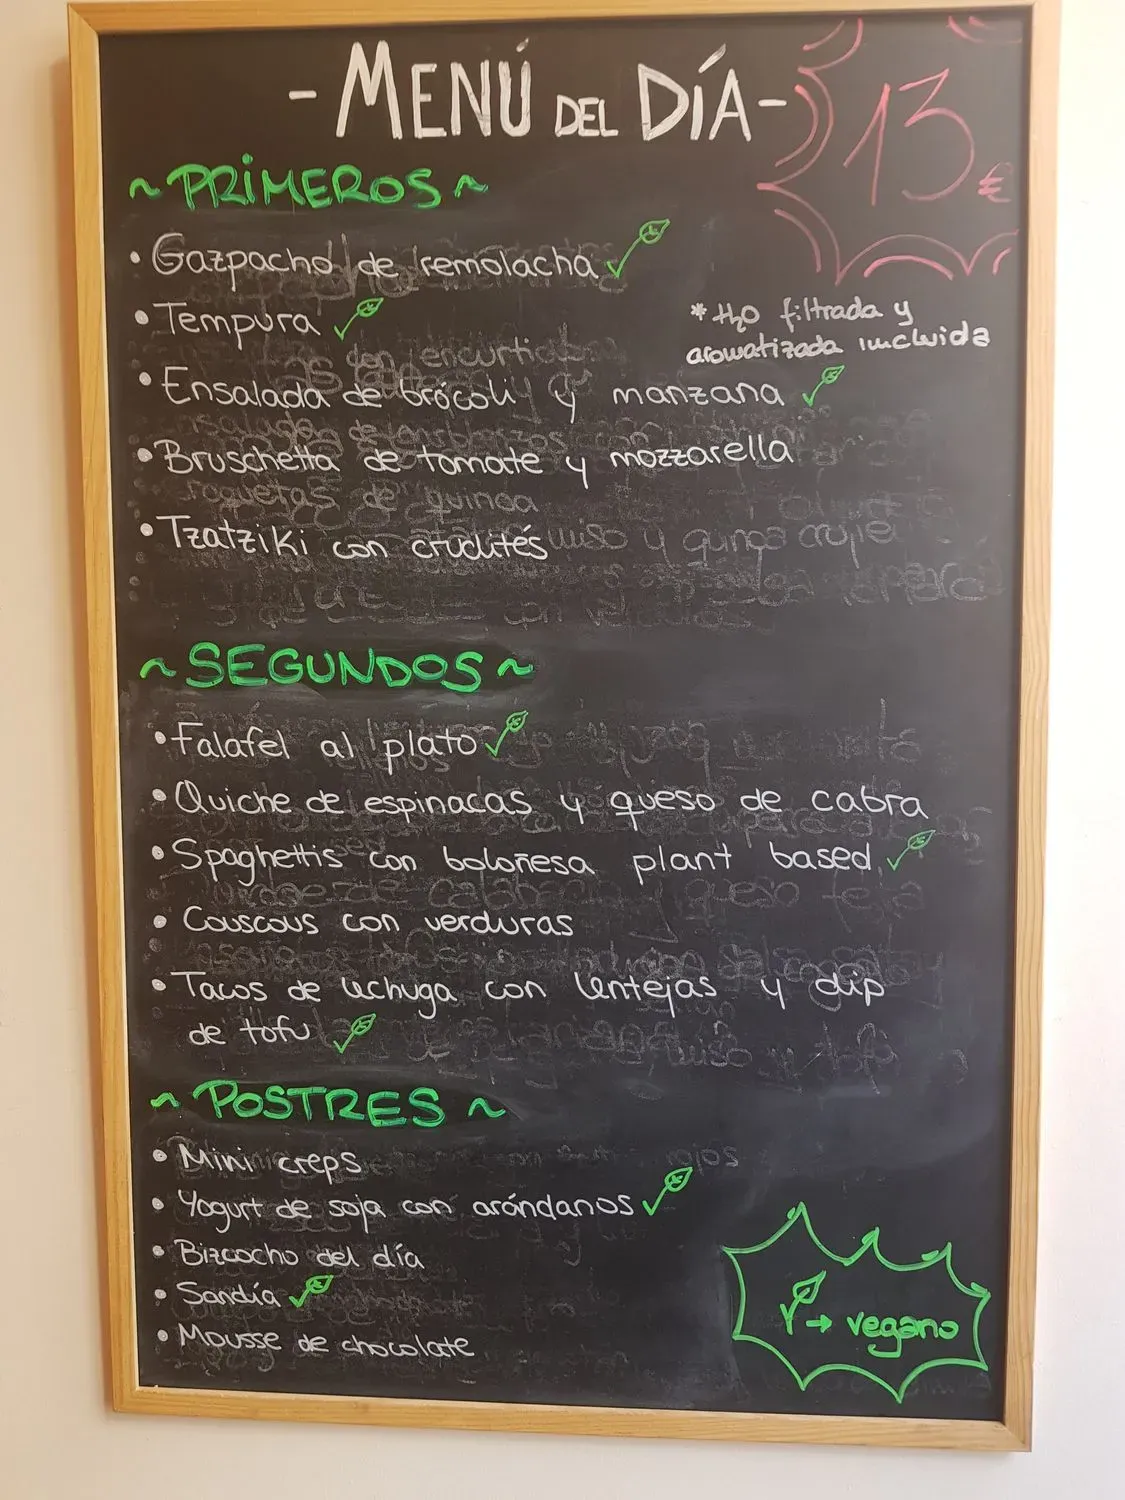 - MENÚ DEL DÍA -
13 €
~ PRIMEROS ~
• Gazpacho de remolacha
• Tempura
* H2O filtrada y
aromatizada incluida
• Ensalada de brócoli y manzana
• Bruschetta de tomate y mozzarella
• Tzatziki con crudités
~ SEGUNDOS ~
• Falafel al plato
• Quiche de espinacas y queso de cabra
• Spaghettis con boloñesa plant based
• Couscous con verduras
• Tacos de lechuga con lentejas y dip
de tofu
~ POSTRES ~
• Mini creps
• Yogurt de soja con arándanos
• Bizcocho del día
• Sandía
• Mousse de chocolate
→ vegano